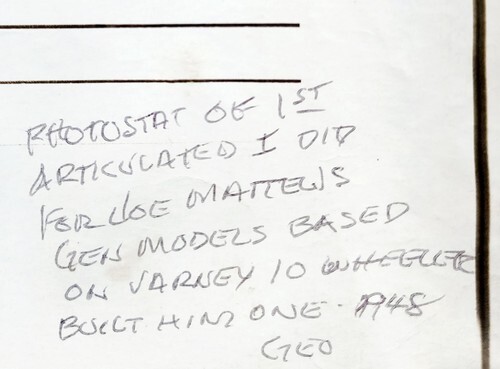 PHOTOSTAT OF 1ST
ARTICULATED I DID
FOR JOE MATTEWS
GEN MODELS BASED
ON VARNEY 10 WHEELER
BUILT HIM ONE - 1948
GEO